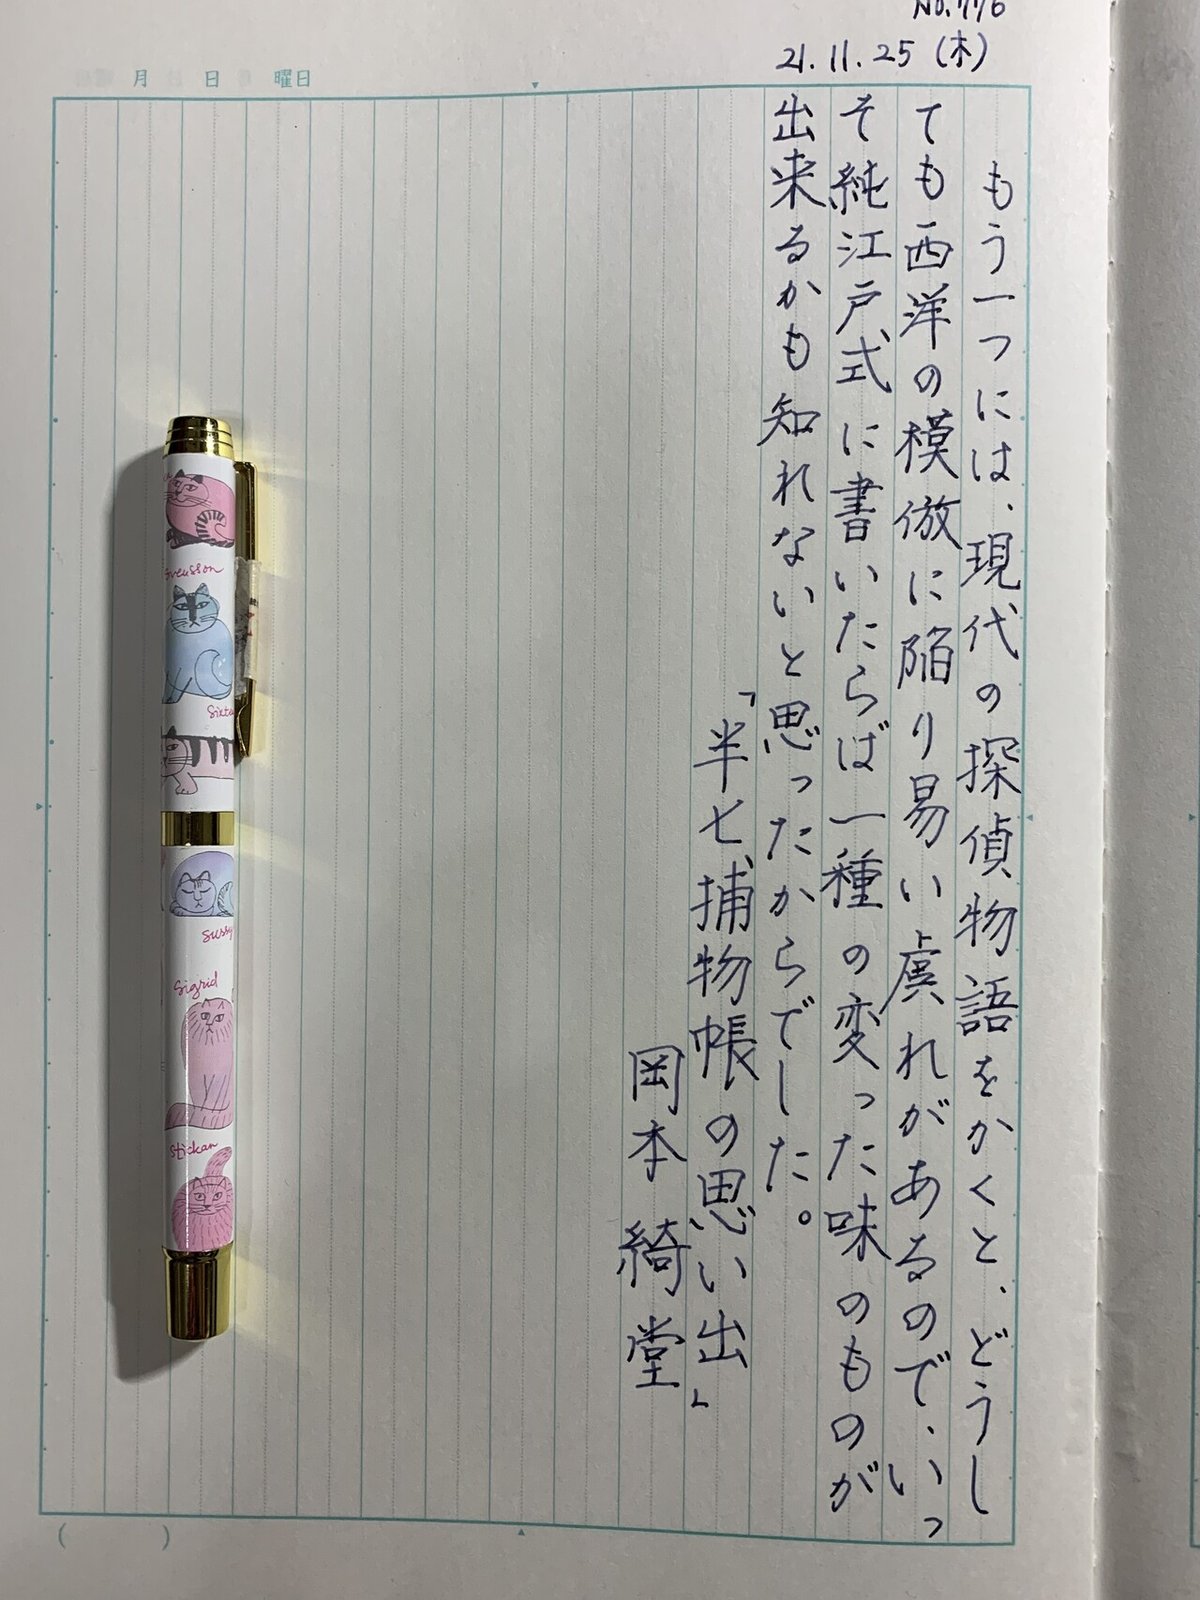 No.776
21.11.25(木)
月 日 曜日
もう一つには、現代の探偵物語をかくと、どうし
ても西洋の模倣に陥り易い虞れがあるので、いっ
そ純江戸式に書いたらば一種の変った味のものが
出来るかも知れないと思ったからでした。
「半七捕物帳の思い出」
岡本 綺堂
Svensson
Sixte
Sussy
Sigrid
Stickan
( )